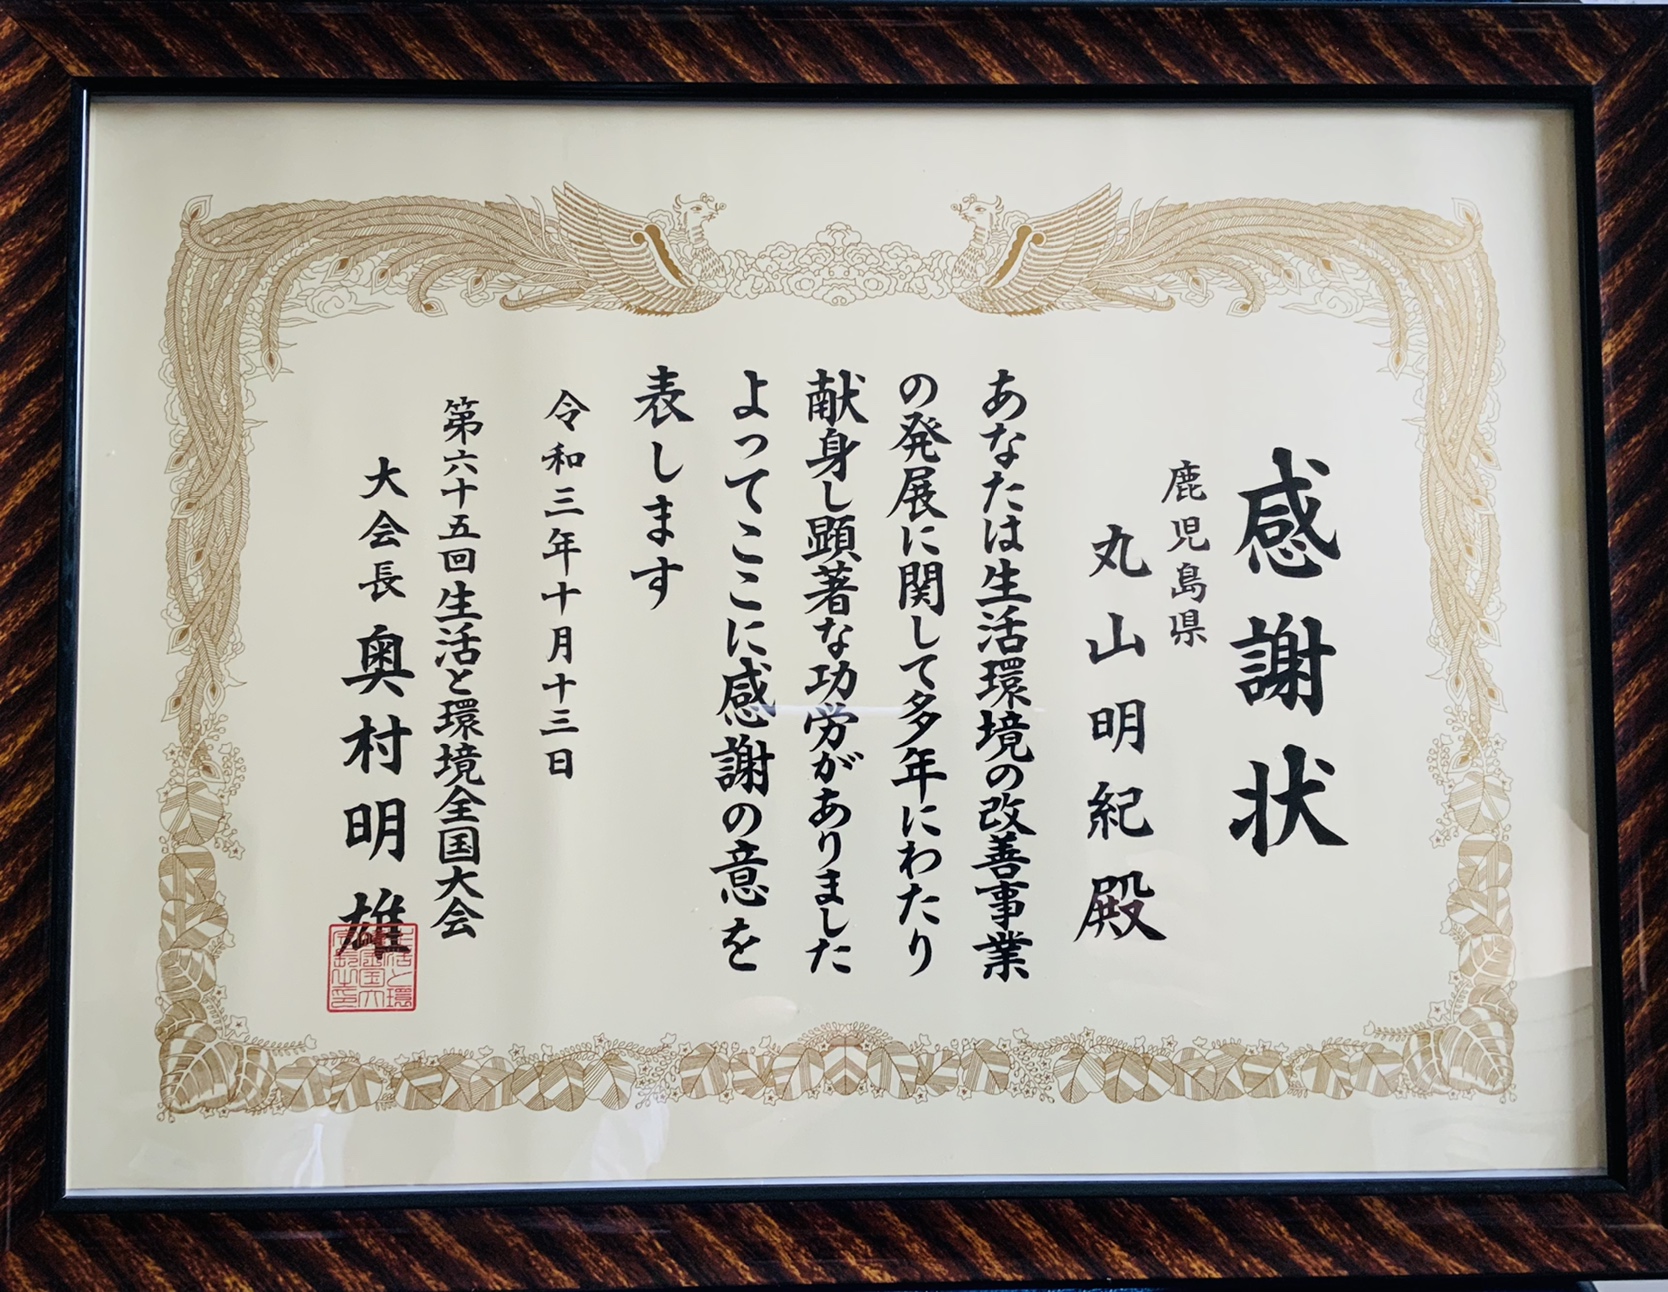 感謝状
鹿児島県
丸山明紀殿
あなたは生活環境の改善事業
の発展に関して多年にわたり
献身し顕著な功労がありました
よってここに感謝の意を
表します
令和三年十月十三日
第六十五回生活と環境全国大会
大会長 奥村明雄